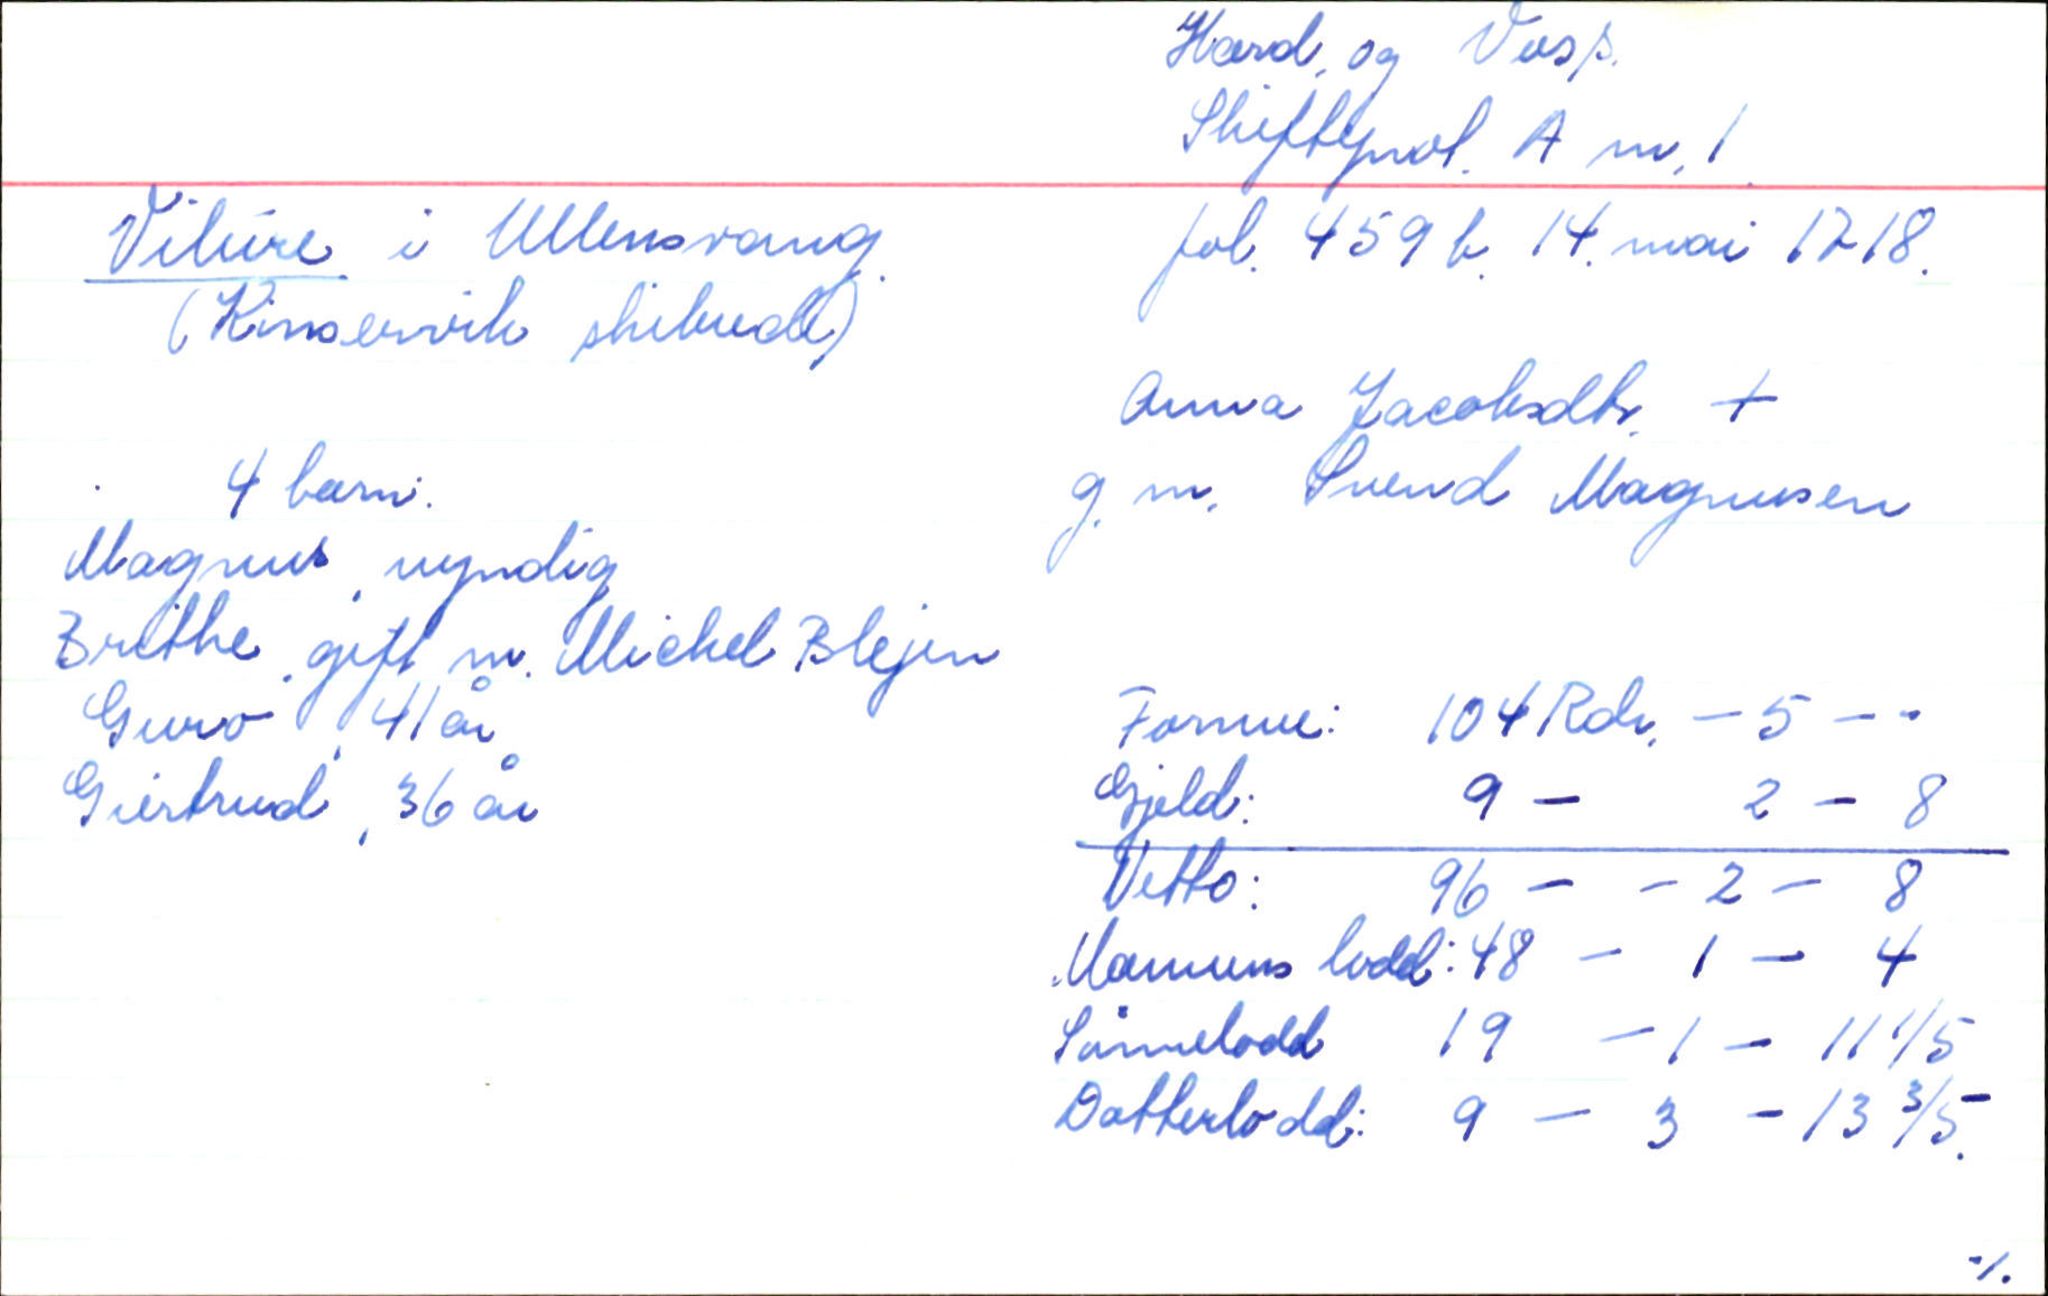 Hard. og Voss.
Skifteprot. A nr. 1.
fol. 459 b. 14. mai 1718.
Vikúre i Ullensvang.
(Kinservik skibrede)
Anna Jacobsdtr. +
g. m. Svend Magnusen
4 barn:
Magnus, myndig
Brithe, gift m. Michel Blejen
Guro, 41 år
Giertrud, 36 år
Formue: 104 Rdr. - 5 - -
Gjeld: 9 - 2 - 8
Netto: 96 - - 2 - 8
Mannens lodd: 48 - 1 - 4
Sønnelodd 19 - 1 - 11 1/5
Datterlodd: 9 - 3 - 13 3/5.
./.